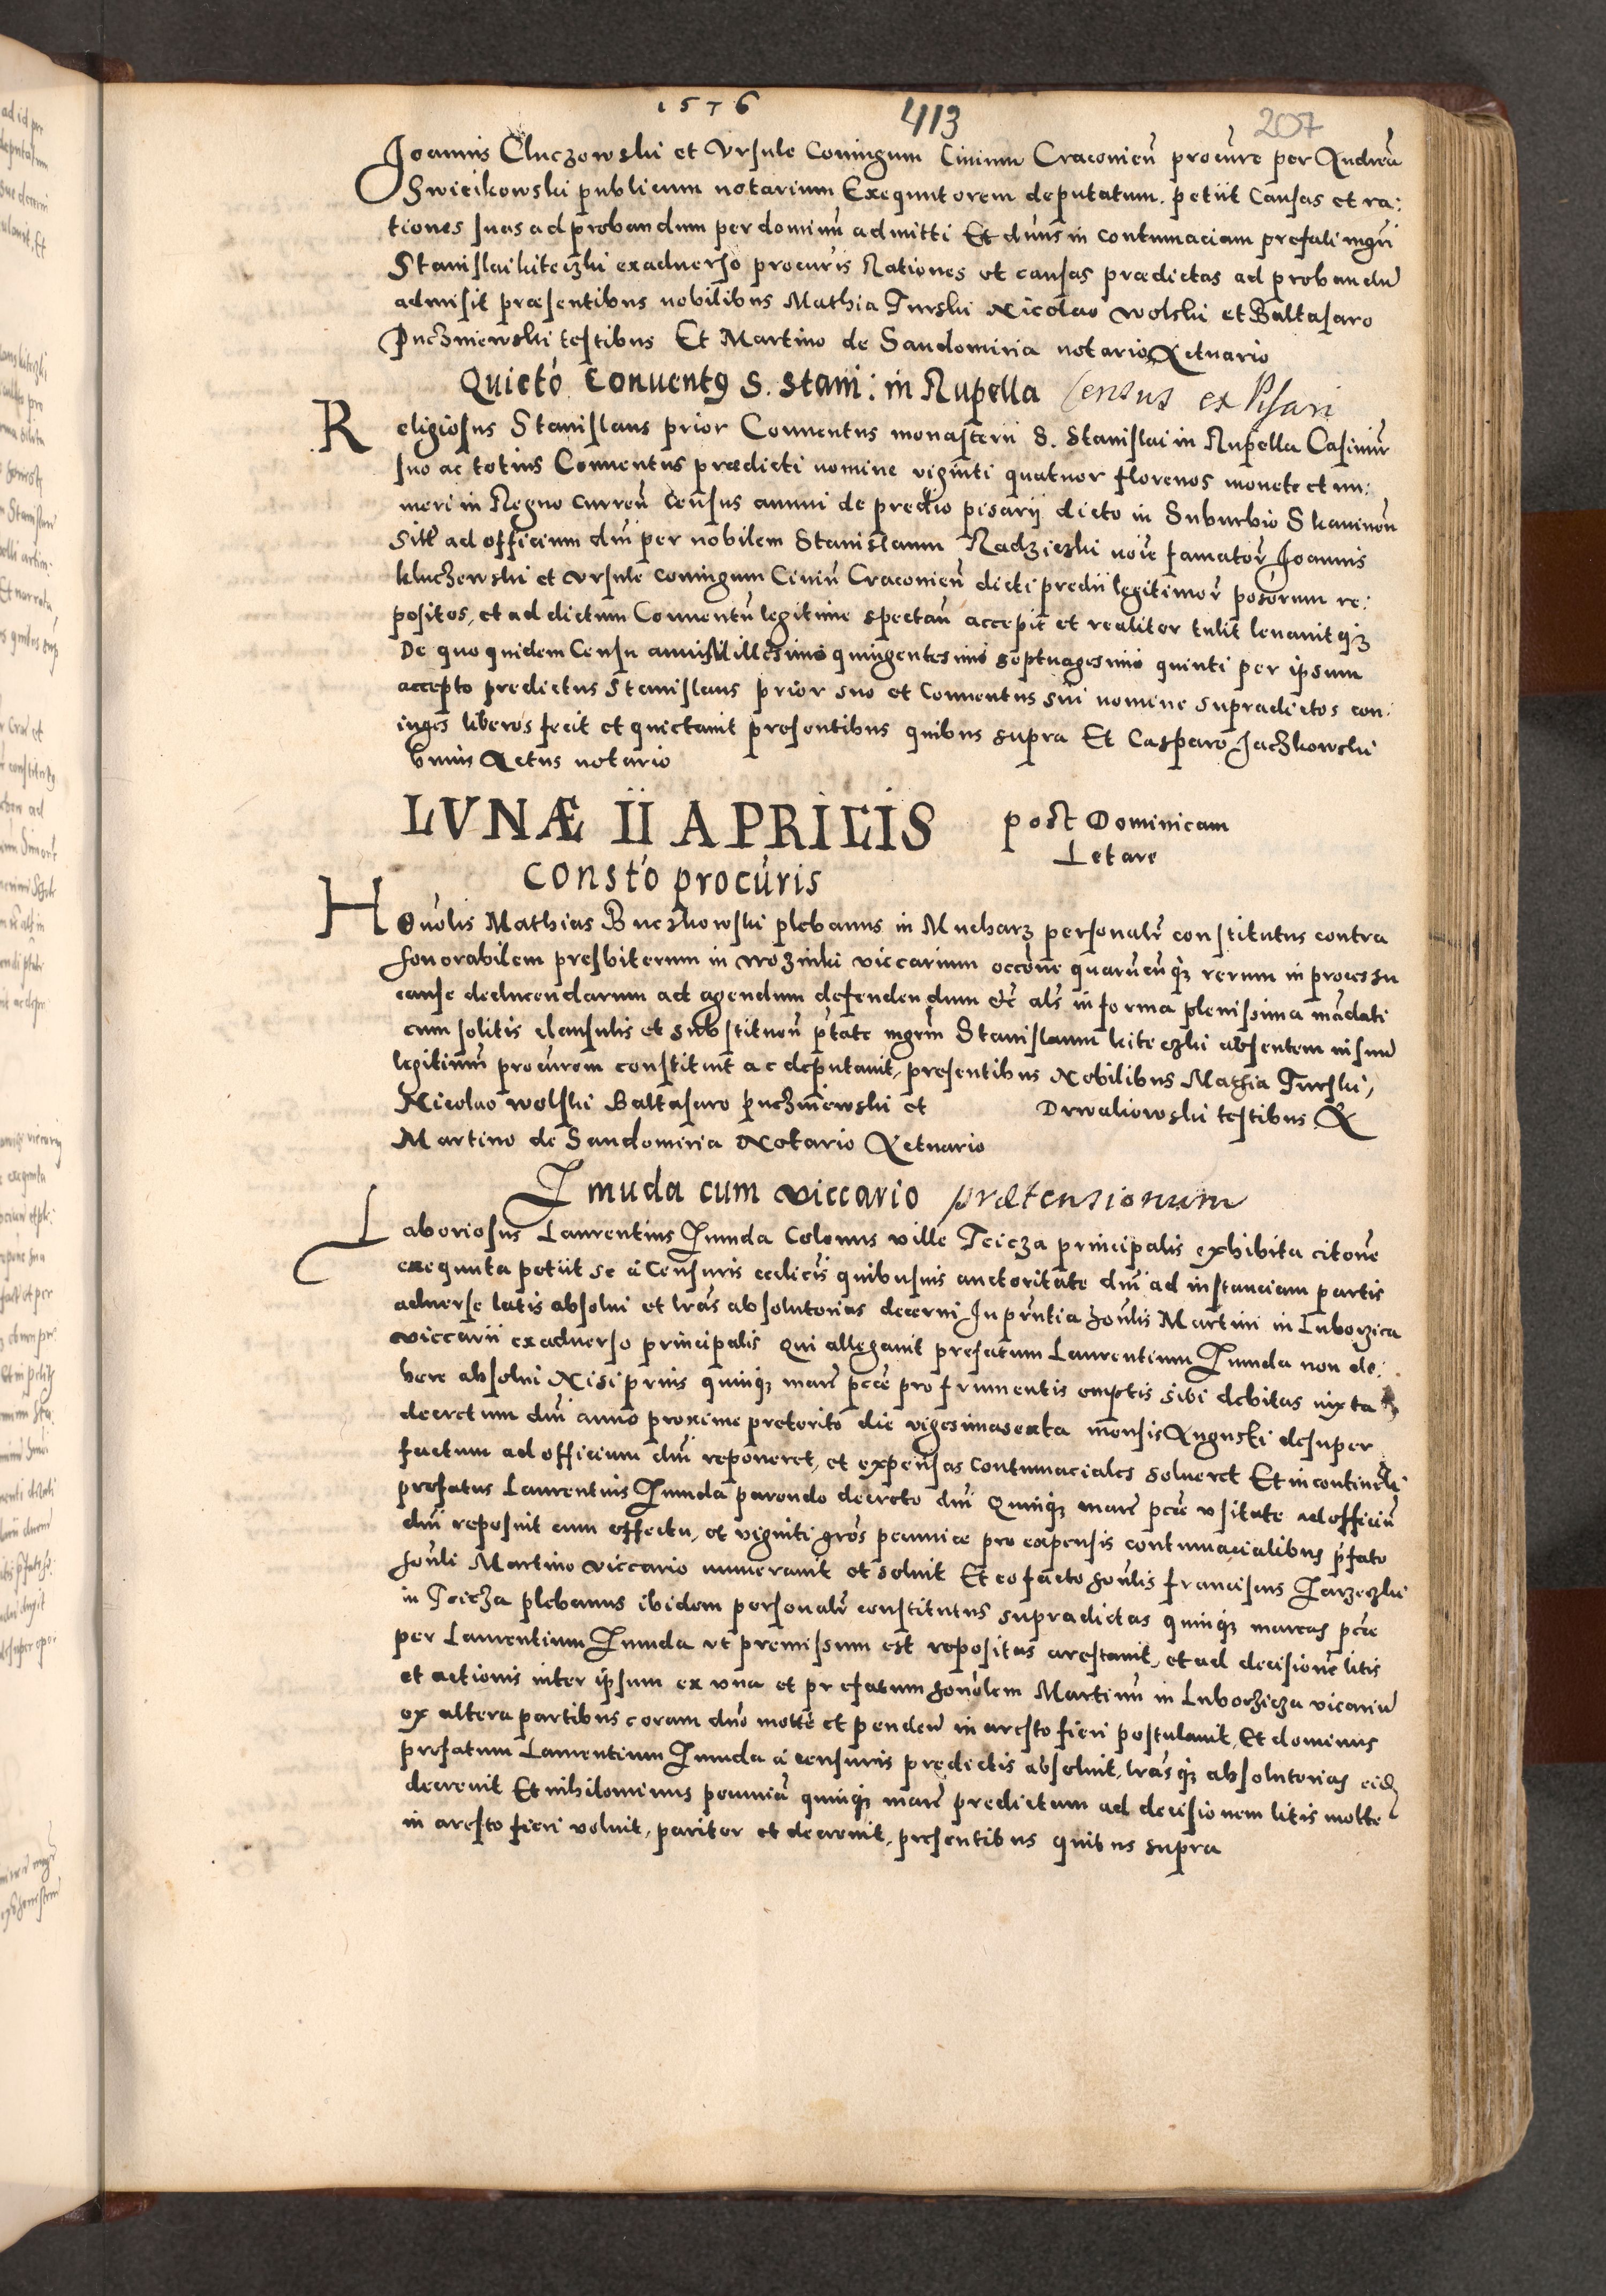 1576 413 207
Joannis Cluczowski et Vrsule Coniugum Ciuium Craconieñ procure per Andreã
Swiecikowski publicum notarium Exequutorem deputatum. petiit Causas et ra:
tiones suas ad probandum per dominũ admitti Et dñus in contumaciam prefati mgri
Stanislai kiteczki ex aduerso procuris Rationes et causas prædictas ad probandũ
admisit præsentibus nobilibus Mathia Turski Nicolao Wolski et Baltasaro
Puczniewski testibus Et Martino de Sandomiria notario Actuario
Quieto Conuentus S. Stani: in Rupella Census ex Pisari
Religiosus Stanislaus prior Conuentus monasterii S. Stanislai in Rupella Casimir
suo ac totius Conuentus prædicti nomine viginti quatuor florenos monete et nu:
meri in Regno Curreñ Census annui de predio pisarÿ dicto in Suburbio Skawinen
Sitt ad officium dñi per nobilem Stanislaum Radziczki noie famator Joannis
kluczewski et Vrsule coniugum Ciuiũ Craconieñ dicti predii legitimor posorum re:
positos, et ad dictum Conuentũ legitime spectañ accepit et realiter tulit leuauit qz
De quo quidem Censu anni Millesimo quingentesimo septuagesimo quinti per ipsum
accepto predictus Stanislaus prior suo et Conuentus sui nomine supradictos con:
iuges liberos fecit et quietauit presentibus quibus supra Et Casparo Jaczkowski
huius Actus notario
LVNÆ II APRILIS post Dominicam
Letare
Consto procuris
Honolis Mathias Buczkowski plebanus in Mucharz personalr constitutus contra
honorabilem presbiterum in wozniki viccarium occone quarucuqz rerum in processu
cause deducendarum ad agendum defendendum etc als in forma plenissima mãdati
cum solitis clausulis et substitueñ ptate mgrm Stanislaum kiteczki absentem in suũ
legitimũ procurem constituit ac deputauit, presentibus Nobilibus Mathia Turski,
Nicolao wolski Baltasaro puczniewski et Drwalowski testibus &
Martino de Sandomiria Notario Actuario
Jmuda cum viccario prætensionum
Laboriosus Laurentius Jmuda Colonus ville Tcicza principalis exhibita citone
exequuta petiit se a Censuris ecclicis quibusuis auctoritate dñi ad instanciam partis
aduerse latis absolui et lras absolutorias decerni In prntia honlis Martini in Luborzica
viccarii ex aduerso principalis Qui allegauit prefatum Laurentium Jmuda non de:
bere absolui Nisi prius quinqz marc pccie pro frumentis emptis sibi debitas iuxta
decretum dñi anno proxime preterito die vigesima sexta mensis Augusti desuper
factum ad officium dñi reponeret, et expensas contumaciales solueret Et incontinenti
prefatus Laurentius Jmuda parendo decreto dñi Quinqz marc pccie vsitate ad officiũ
dñi reposuit cum effectu, et viginti gros pecunice pro expensis contumacialibus pfato
honli Martino viccario numerauit et soluit Et eo facto honlis franciscus Jarzeczki
in Tcicza plebanus ibidem personalr constitutus supradictas quinqz marcas pccie
per Laurentium Jmuda vt premissum est repositas arestauit, et ad decisione litis
et actionis inter ipsum ex vna et prefatum honolem Martinũ in Luborzicza vicariũ
ex altera partibus coram dño motte et pendeñ in aresto fieri postulauit, Et dominus
prefatum Laurentium Jmuda a censuris predictis absoluit, lrasqz absolutorias eid
decreuit Et nihilominus pecuniã quinqz marc predictum ad decisionem litis motte
in aresto fieri voluit, pariter et decreuit, presentibus quibus supra